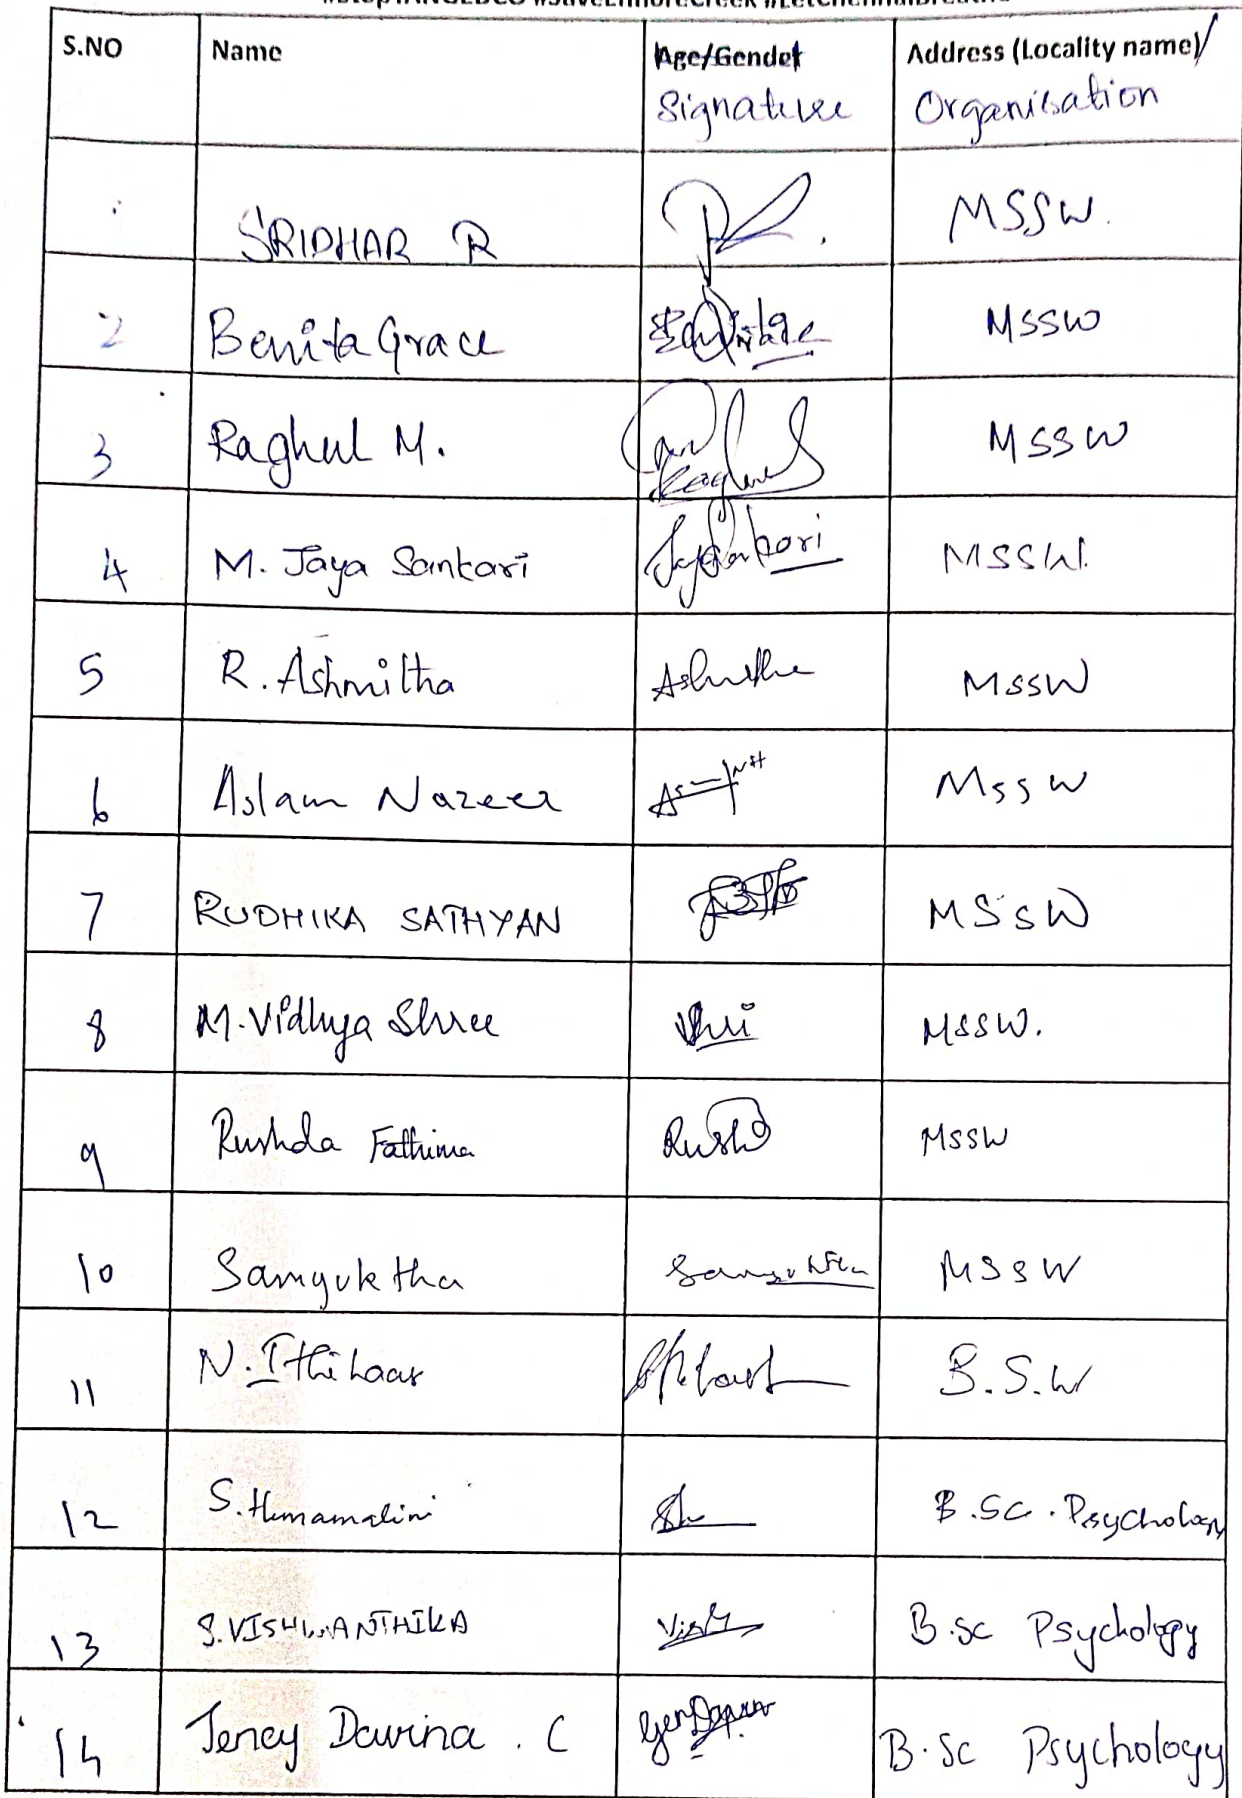 S.NO Name Age/Gender Address (Locality name)/
Signature Organisation
SRIDHAR R MSSW.
2 Benita Grace MSSW
3 Raghul M. Raghul MSSW
4 M. Jaya Sankari JaySankari MSSW.
5 R. Ashmitha Ashmitha MSSW
6 Aslam Nazeer MSSW
7 RUDHIKA SATHYAN MSSW
8 M. Vidhya Shree Shri MSSW.
9 Rushda Fathima Rushd MSSW
10 Samyuktha Samyuktha MSSW
11 N. Ithihaas B.S.W
12 S. Hemamalini B.SC. Psychology
13 S. VISHWANTHIKA B.SC Psychology
14 Jency Davina . C B.SC Psychology